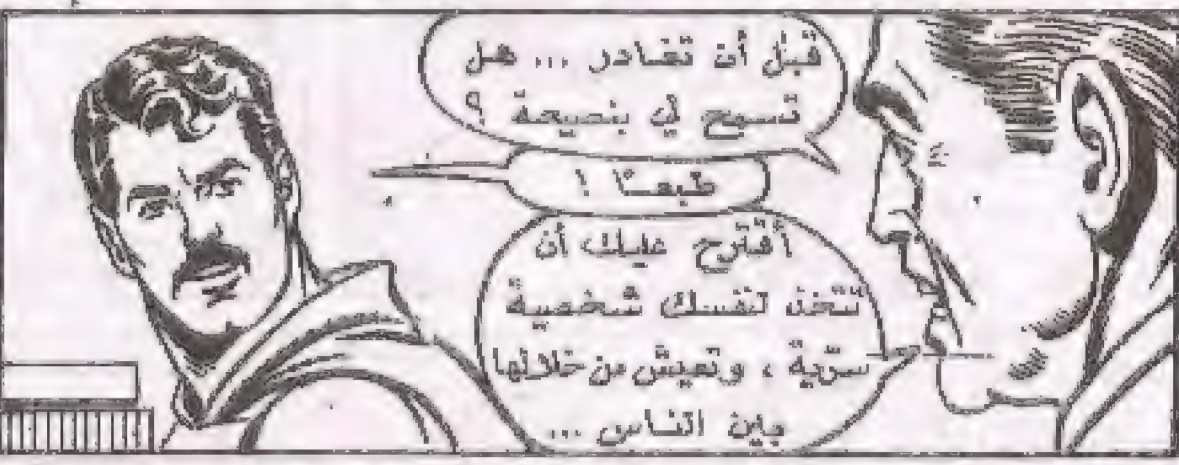 قبل أن تغادر ... هل
تسمح لي بنصيحة ؟
طبعـًا !
أقترح عليك أن
تتخذ لنفسك شخصية
سرّية ، وتعيش من خلالها
بين الناس ...